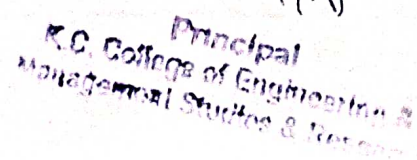 Principal
K.C. College of Engineering &
Management Studies & Resea